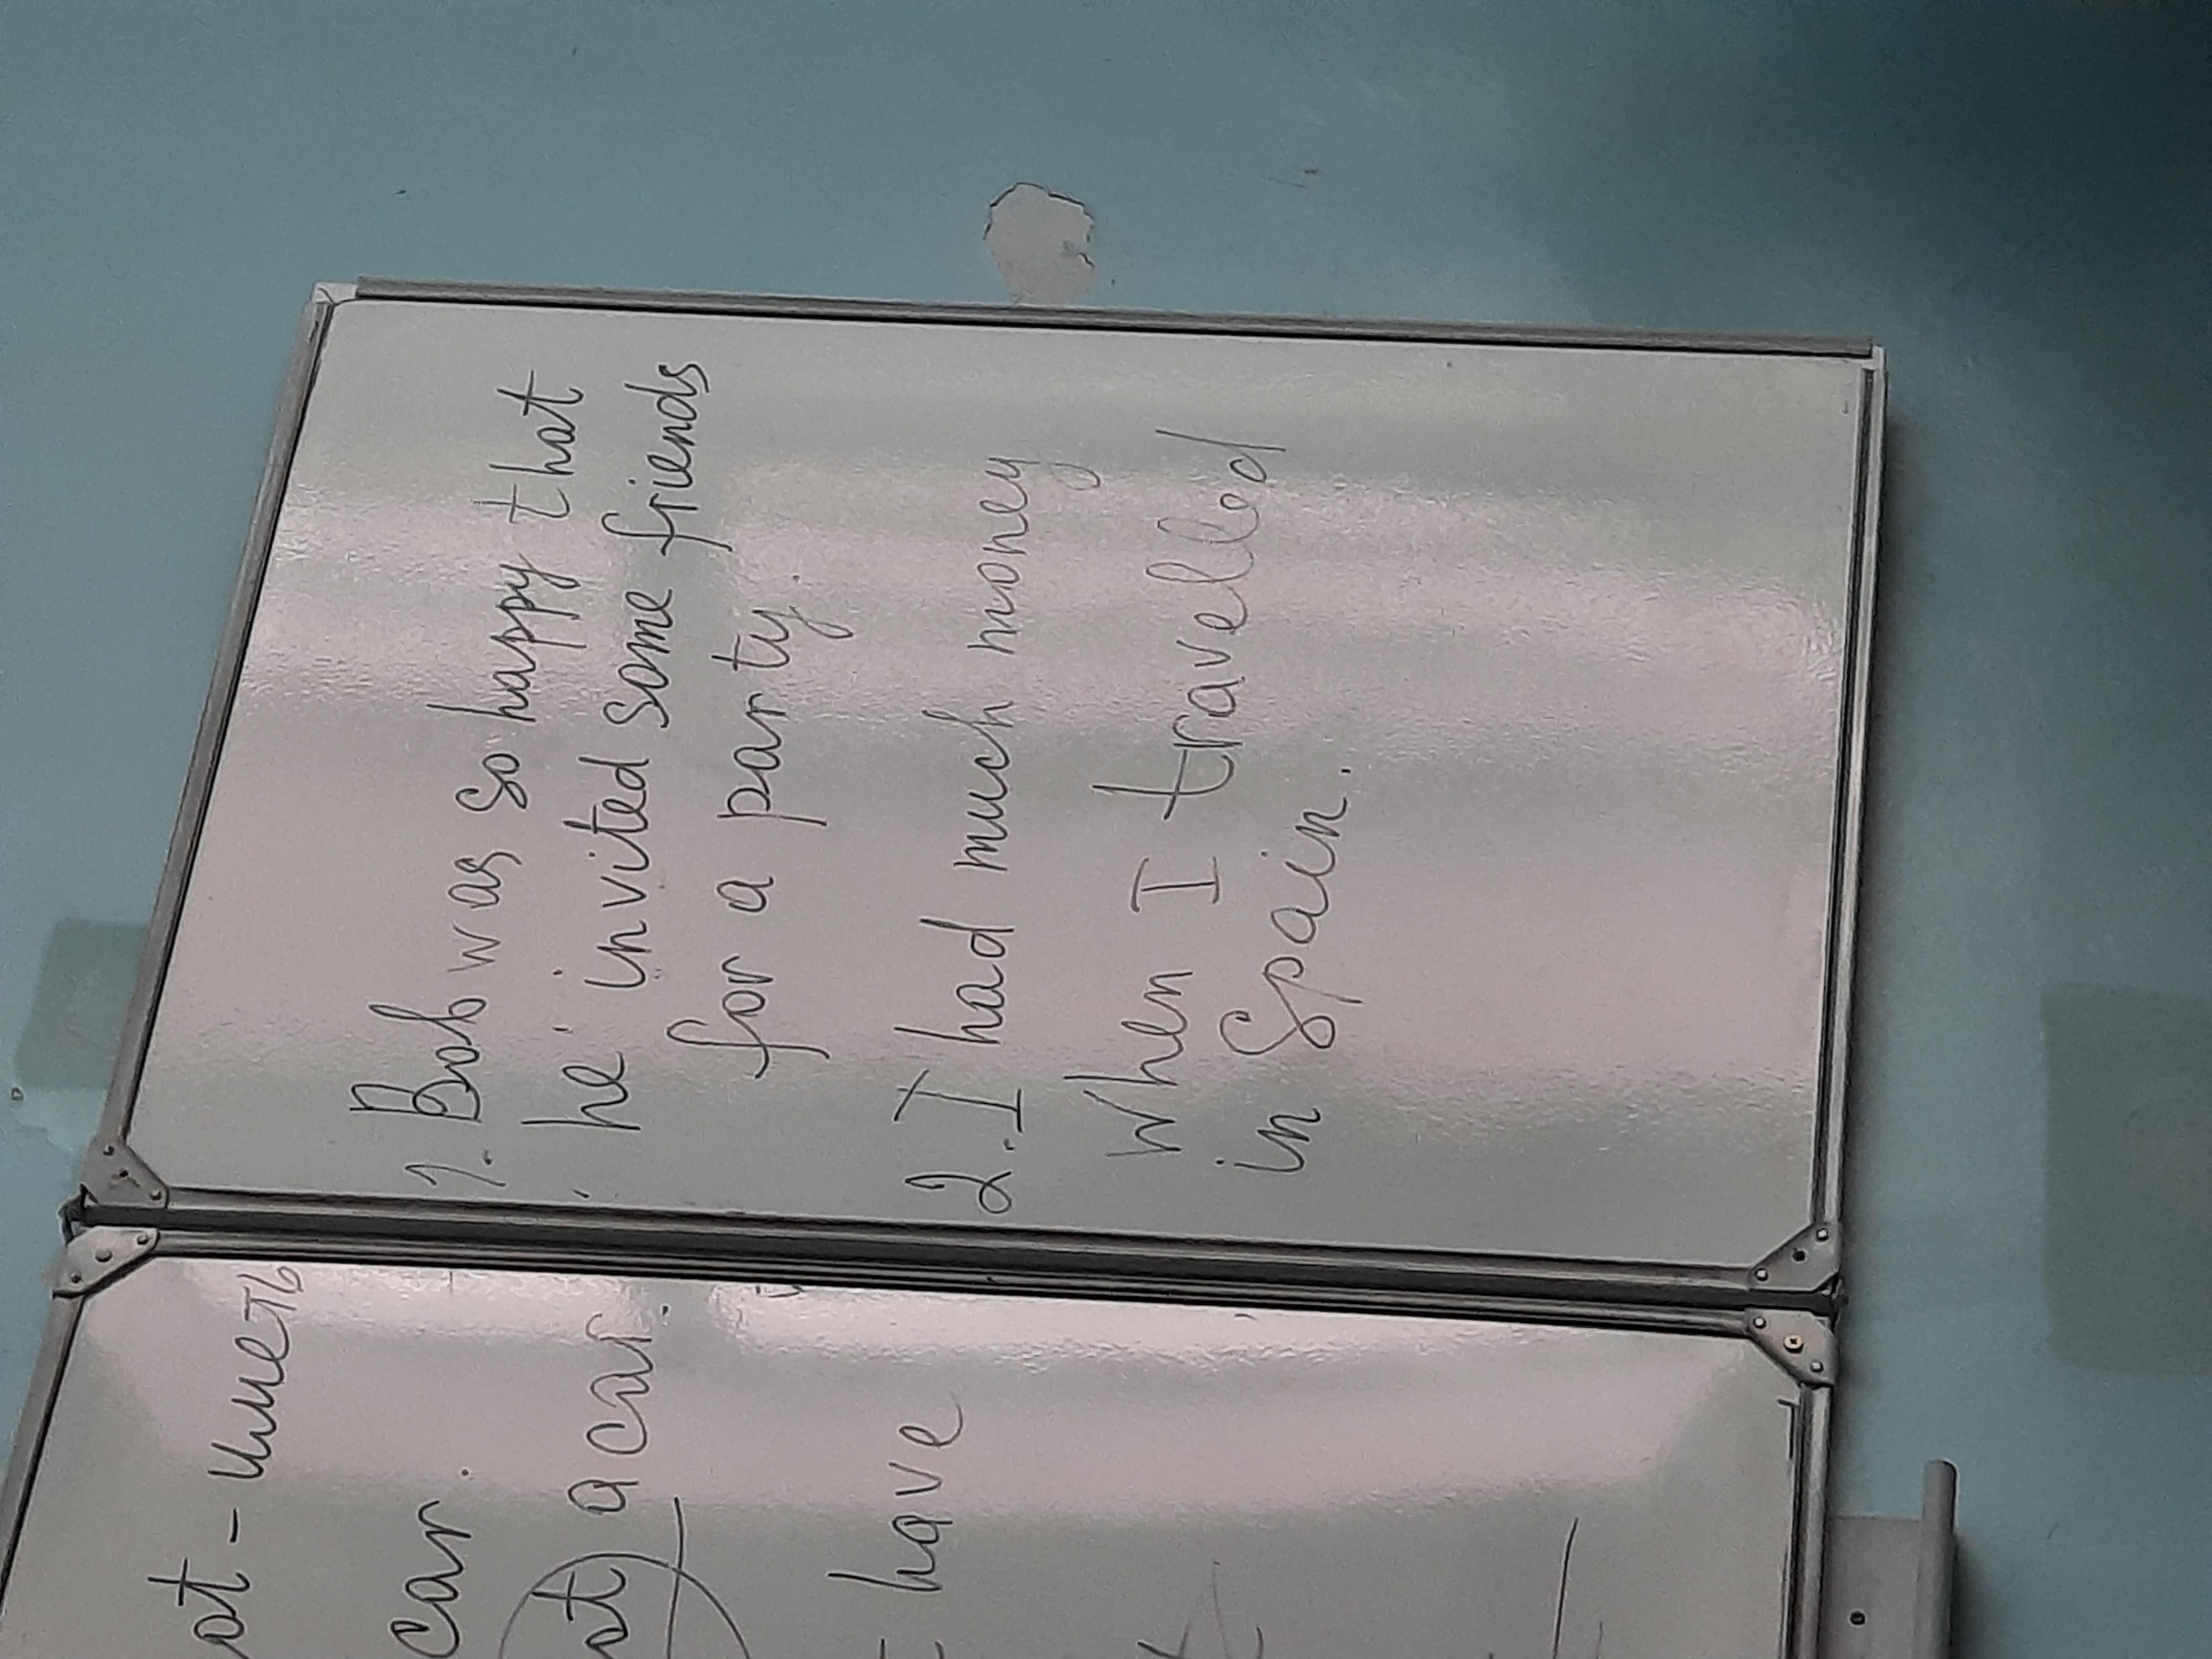 1. Bob was so happy that
he invited some friends
for a party
2. I had much money
when I travelled
in Spain.
- иметь
car.
a car.
have